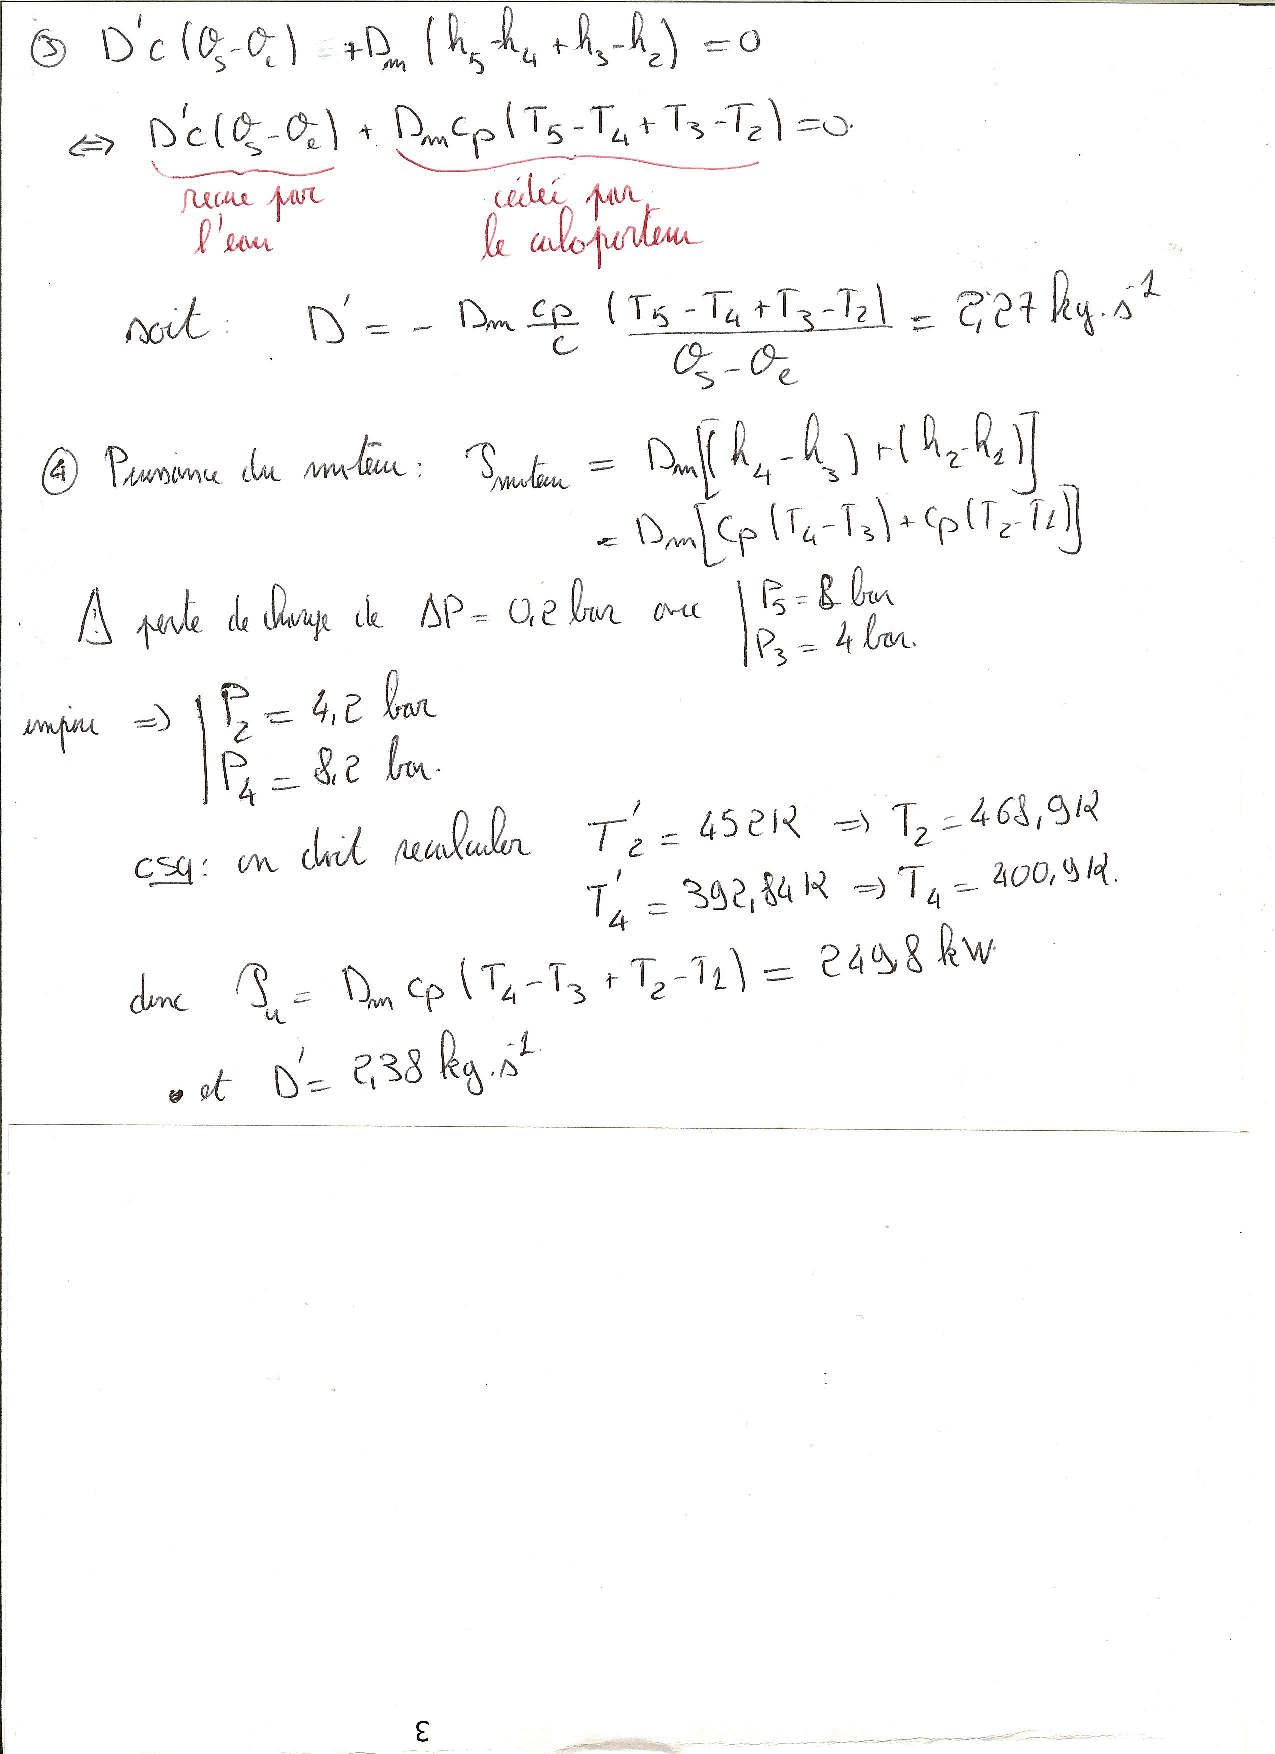 ③ D'c(θs-θe) = +Dm (h5-h4+h3-h2) = 0
⇔ D'c(θs-θe) + Dm cp (T5-T4+T3-T2) = 0.
reçue par
l'eau
cédée par
le caloporteur
soit : D' = - Dm cp/c (T5-T4+T3-T2)/(θs-θe) = 2,27 kg.s-1
④ Puissance du moteur : Pmoteur = Dm[(h4-h3)+(h2-h1)]
= Dm[cp(T4-T3)+cp(T2-T1)]
⚠ perte de charge de ΔP = 0,2 bar avec | P5 = 8 bar
| P3 = 4 bar.
impose => | P2 = 4,2 bar
| P4 = 8,2 bar.
csq : on doit recalculer T2' = 452K => T2 = 468,9K
T4' = 392,84K => T4 = 400,9K.
donc Pu = Dm cp (T4-T3+T2-T1) = 249,8 kW
• et D' = 2,38 kg.s-1.
3